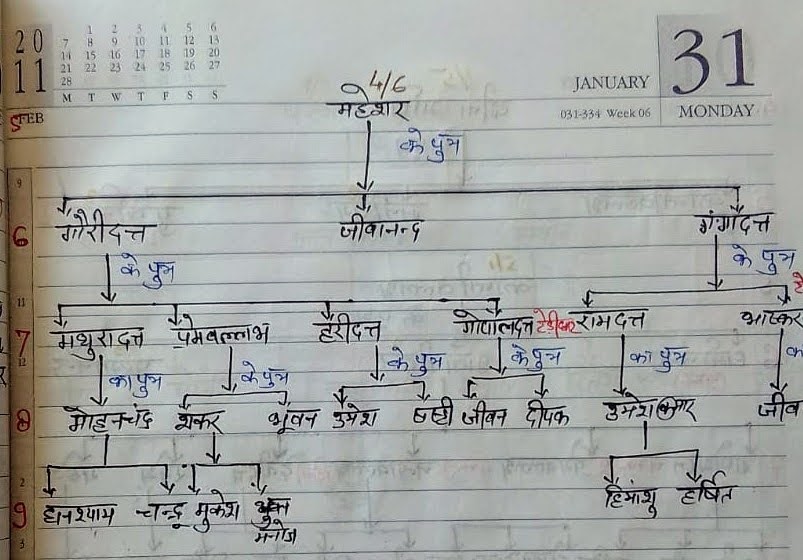 20 11
1 2 3 4 5 6
7 8 9 10 11 12 13
14 15 16 17 18 19 20
21 22 23 24 25 26 27
28
M T W T F S S
FEB
JANUARY 31
031-334 Week 06 MONDAY
4/6
महेशर
के पुत्र
9
6 गौरीदत्त जीवानन्द गंगादत्त
के पुत्र के पुत्र
11
7 मथुरादत्त प्रेमवल्लभ हरीदत्त गोपालदत्त रामदत्त भास्कर
12
का पुत्र के पुत्र के पुत्र के पुत्र का पुत्र का
8 मोहनचंद्र शंकर भूवन उमेश षष्टी जीवन दीपक उमेश जीव
2
9 घनश्याम चन्दू मुकेश हिमांशु हर्षित
मनोज
3